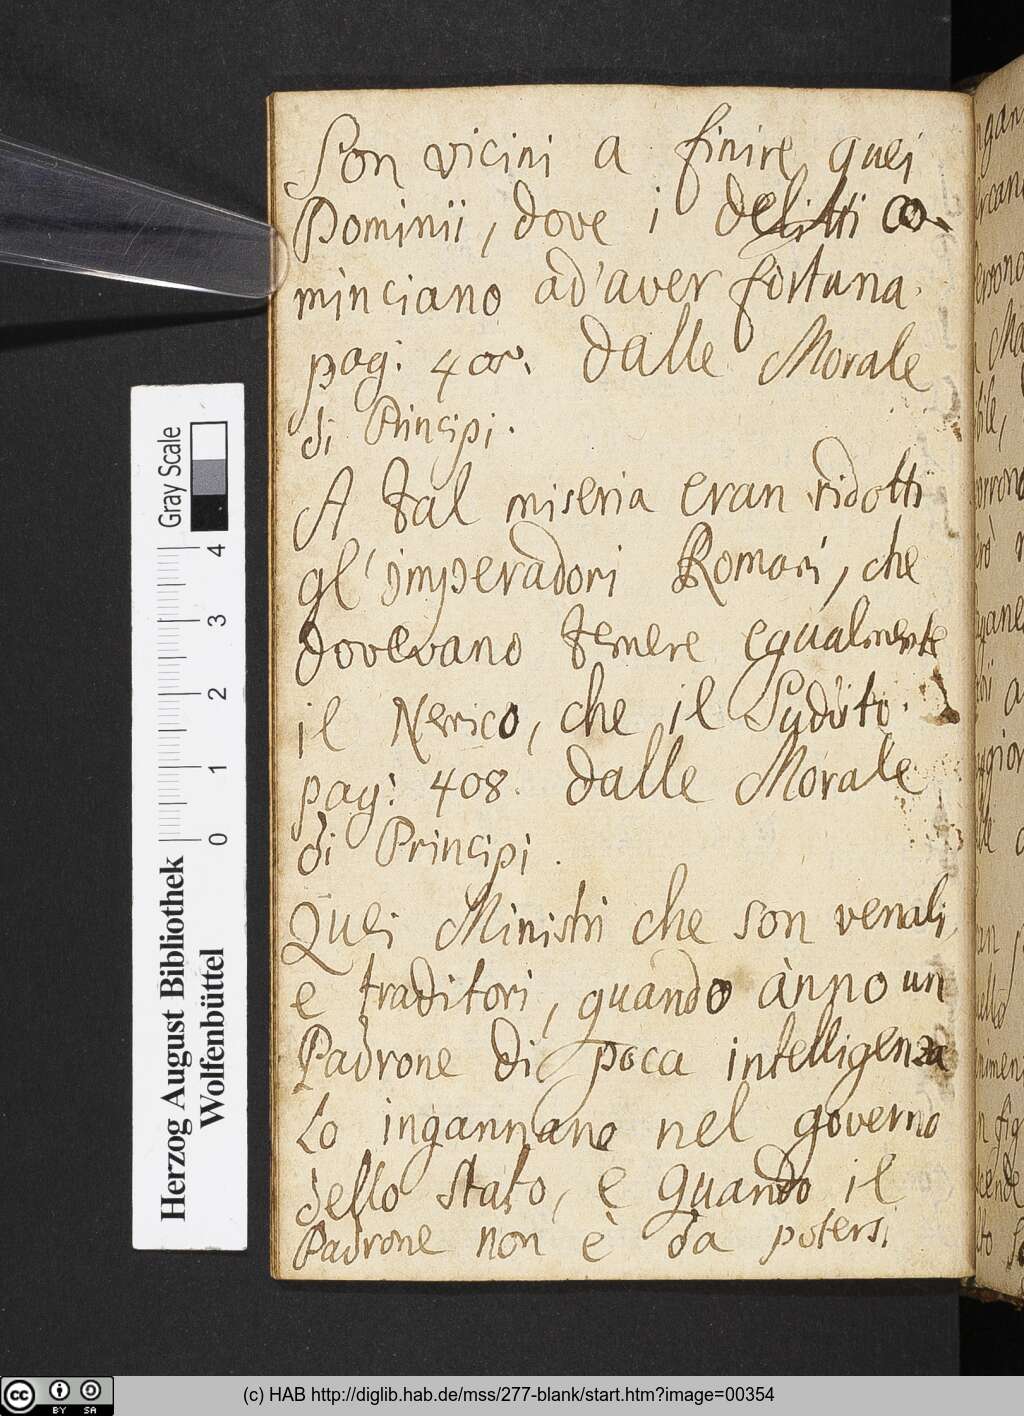 Son vicini a finire quei
Dominii, dove i delitti co-
minciano ad'aver fortuna.
pag: dalle Morale
di Principi.
A tal miseria eran ridotti
gl'imperadori Romani, che
dovevano temere egualmente
il Nemico, che il Suddito.
pag: 408. dalle Morale
di Principi.
Quei Ministri che son venali,
e traditori, quando ànno un
Padrone di poca intelligenza
Lo ingannano nel governo
dello stato, e quando il
Padrone non è da potersi
Gray Scale
4
3
2
1
0
Herzog August Bibliothek
Wolfenbüttel
(c) HAB http://diglib.hab.de/mss/277-blank/start.htm?image=00354
cc BY SA